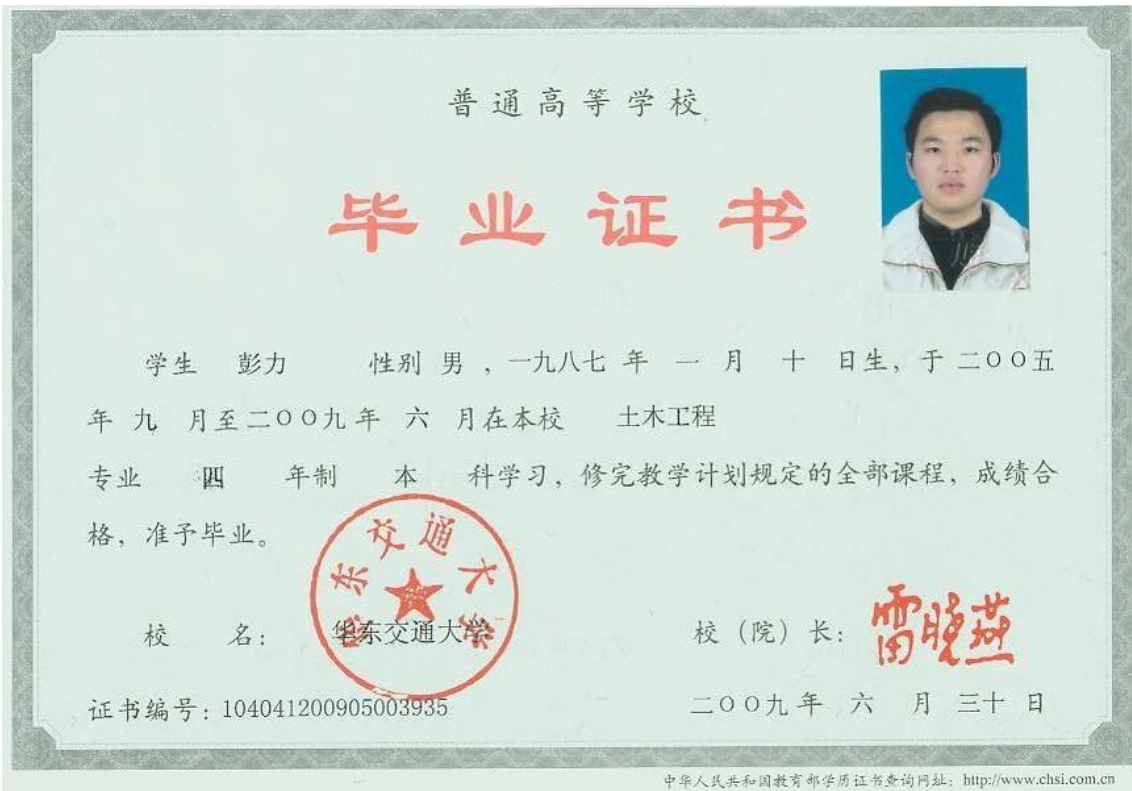 普通高等学校
毕业证书
学生 彭力 性别 男 ，一九八七 年 一 月 十 日生，于 二〇〇五
年 九 月至 二〇〇九 年 六 月在本校 土木工程
专业 四 年制 本 科学习，修完教学计划规定的全部课程，成绩合
格，准予毕业。
华东交通大学
校 名： 华东交通大学 校（院）长： 雷晓燕
证书编号：104041200905003935 二〇〇九 年 六 月 三十 日
中华人民共和国教育部学历证书查询网址：http://www.chsi.com.cn